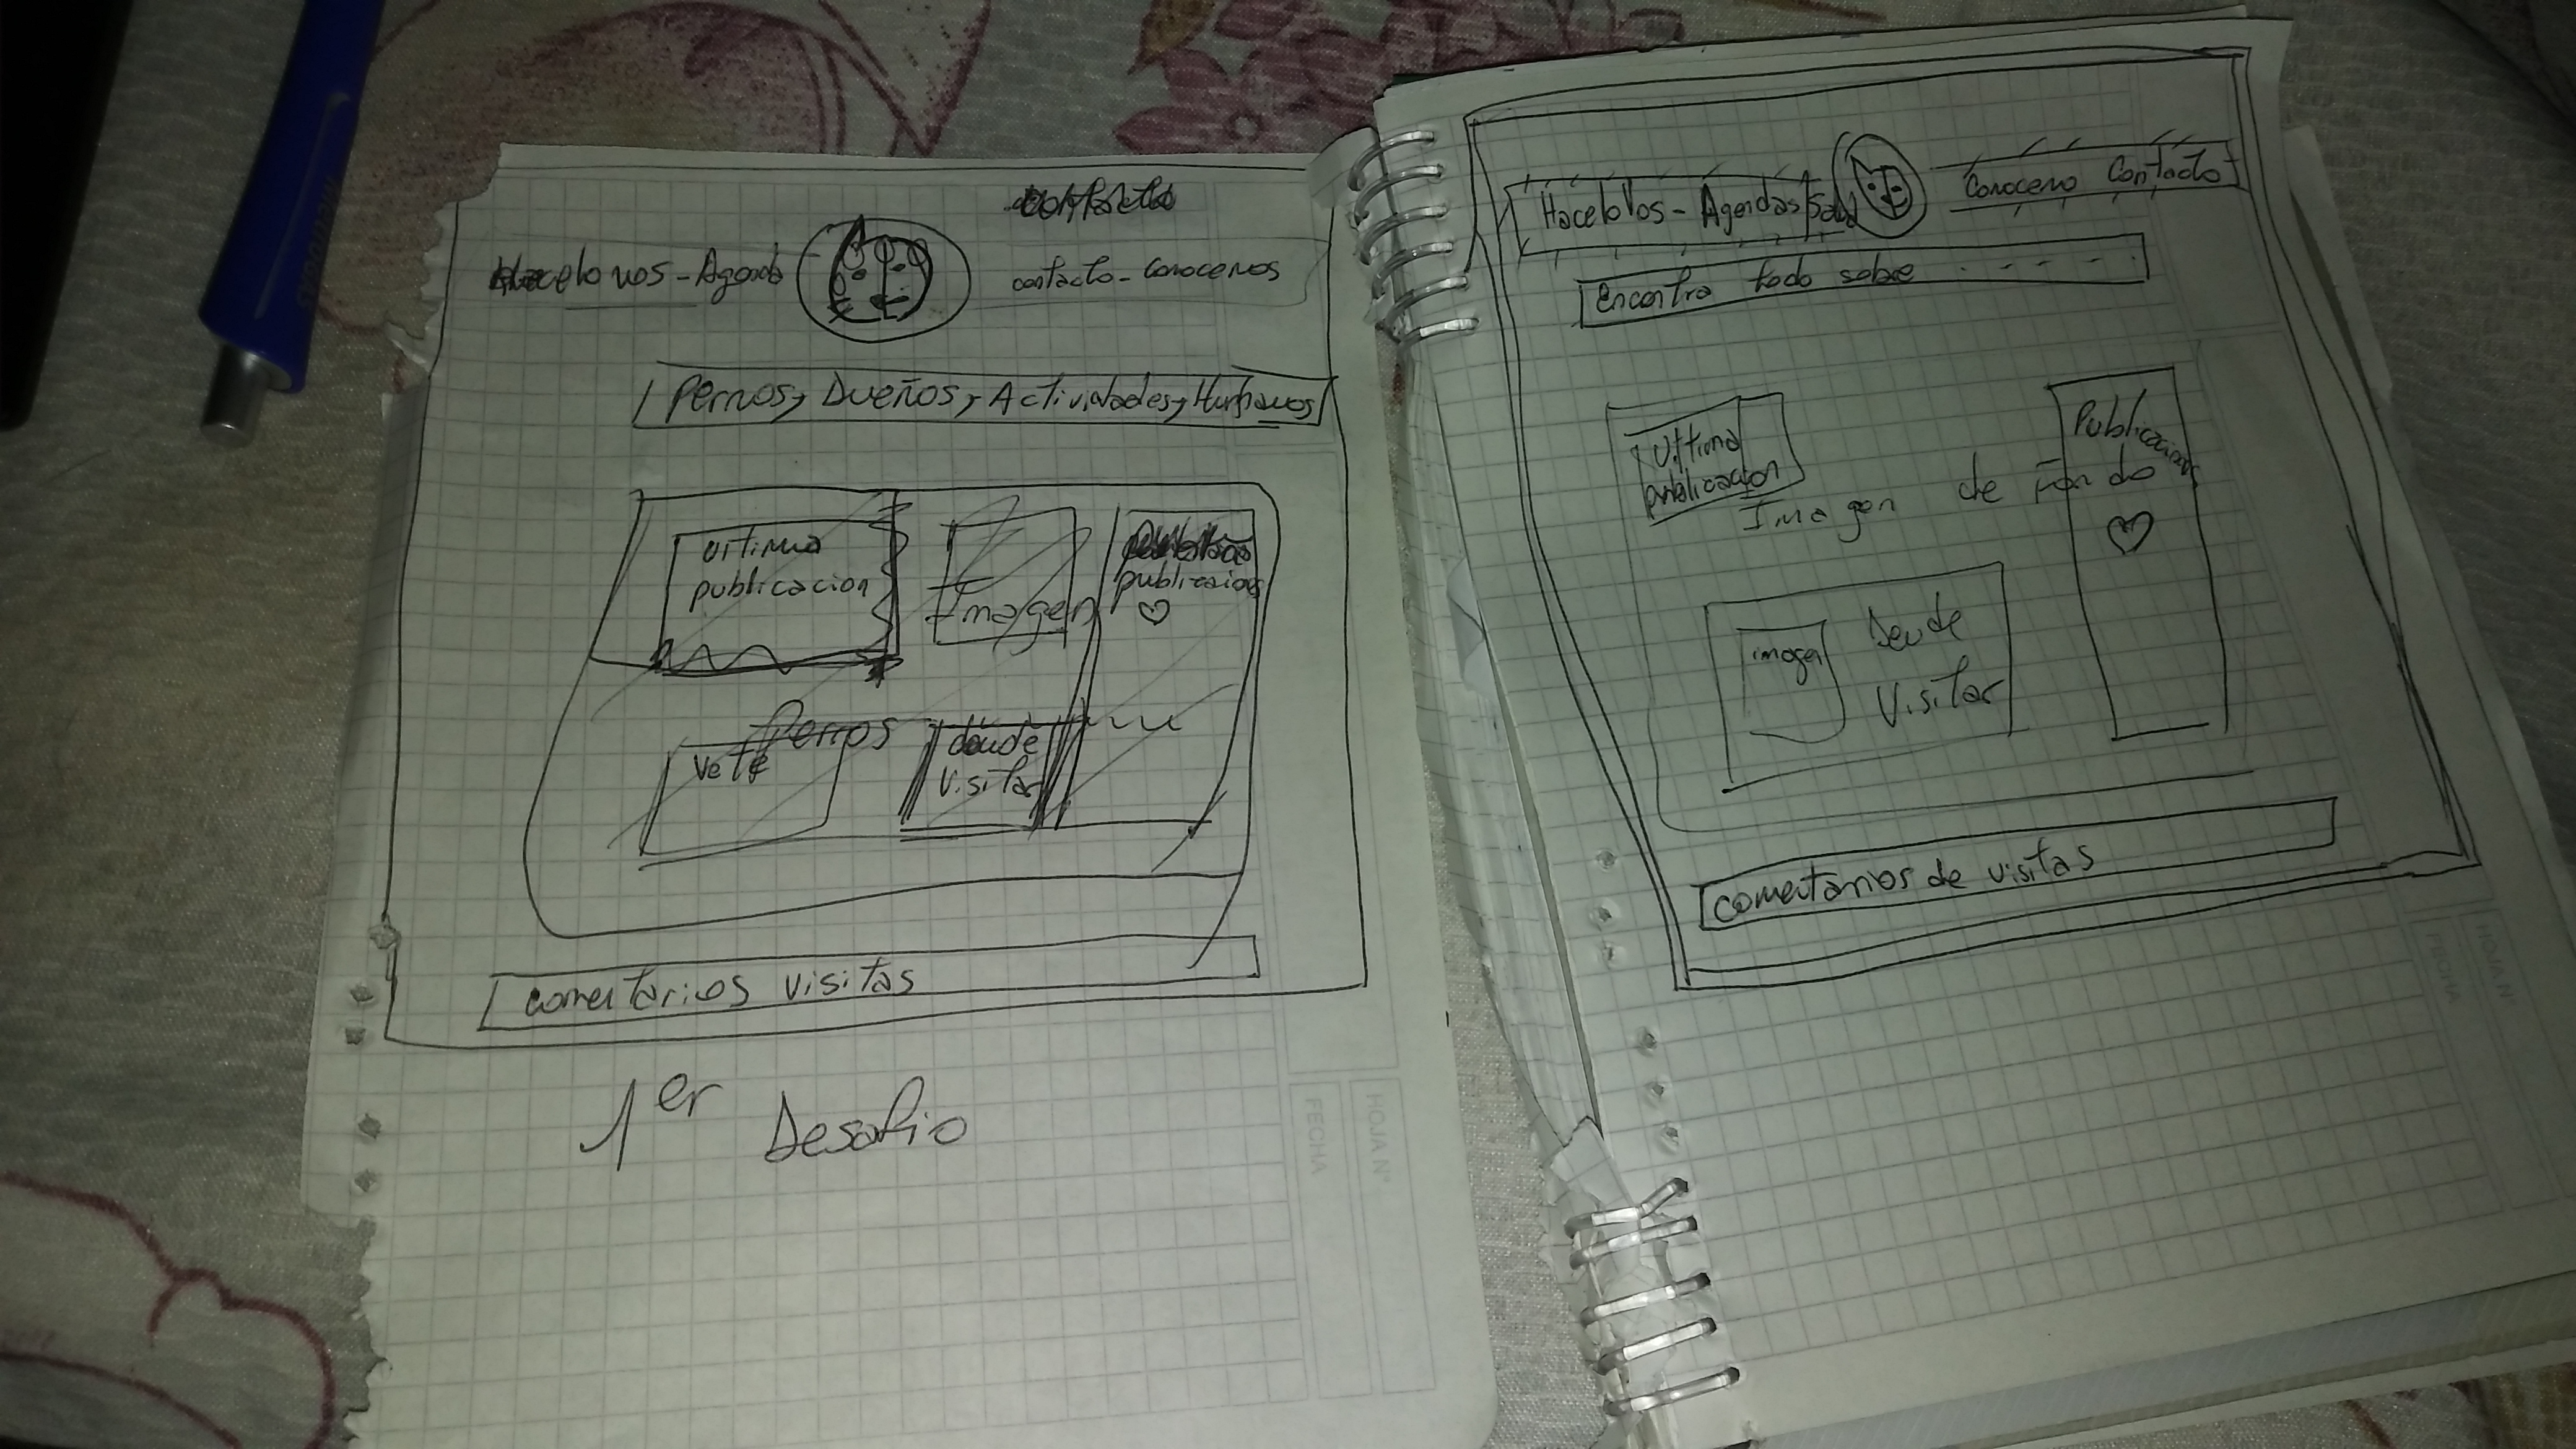 Hacelo vos - Agenda
contacto - conocenos
Perros, Dueños, Actividades, Humanos
Ultima
publicacion
Imagen
publicaciones
Perros
Vete
donde
visitar
comentarios visitas
1er Desafio
FECHA
HOJA Nº
Hacelo Vos - Agendas Salud
Conoceno Contacto
Encontra todo sobre . - - - .
Ultima
publicacion
Imagen de fondo
Publicaciones
imagen
Donde
Visitar
comentarios de visitas
FECHA
HOJA Nº